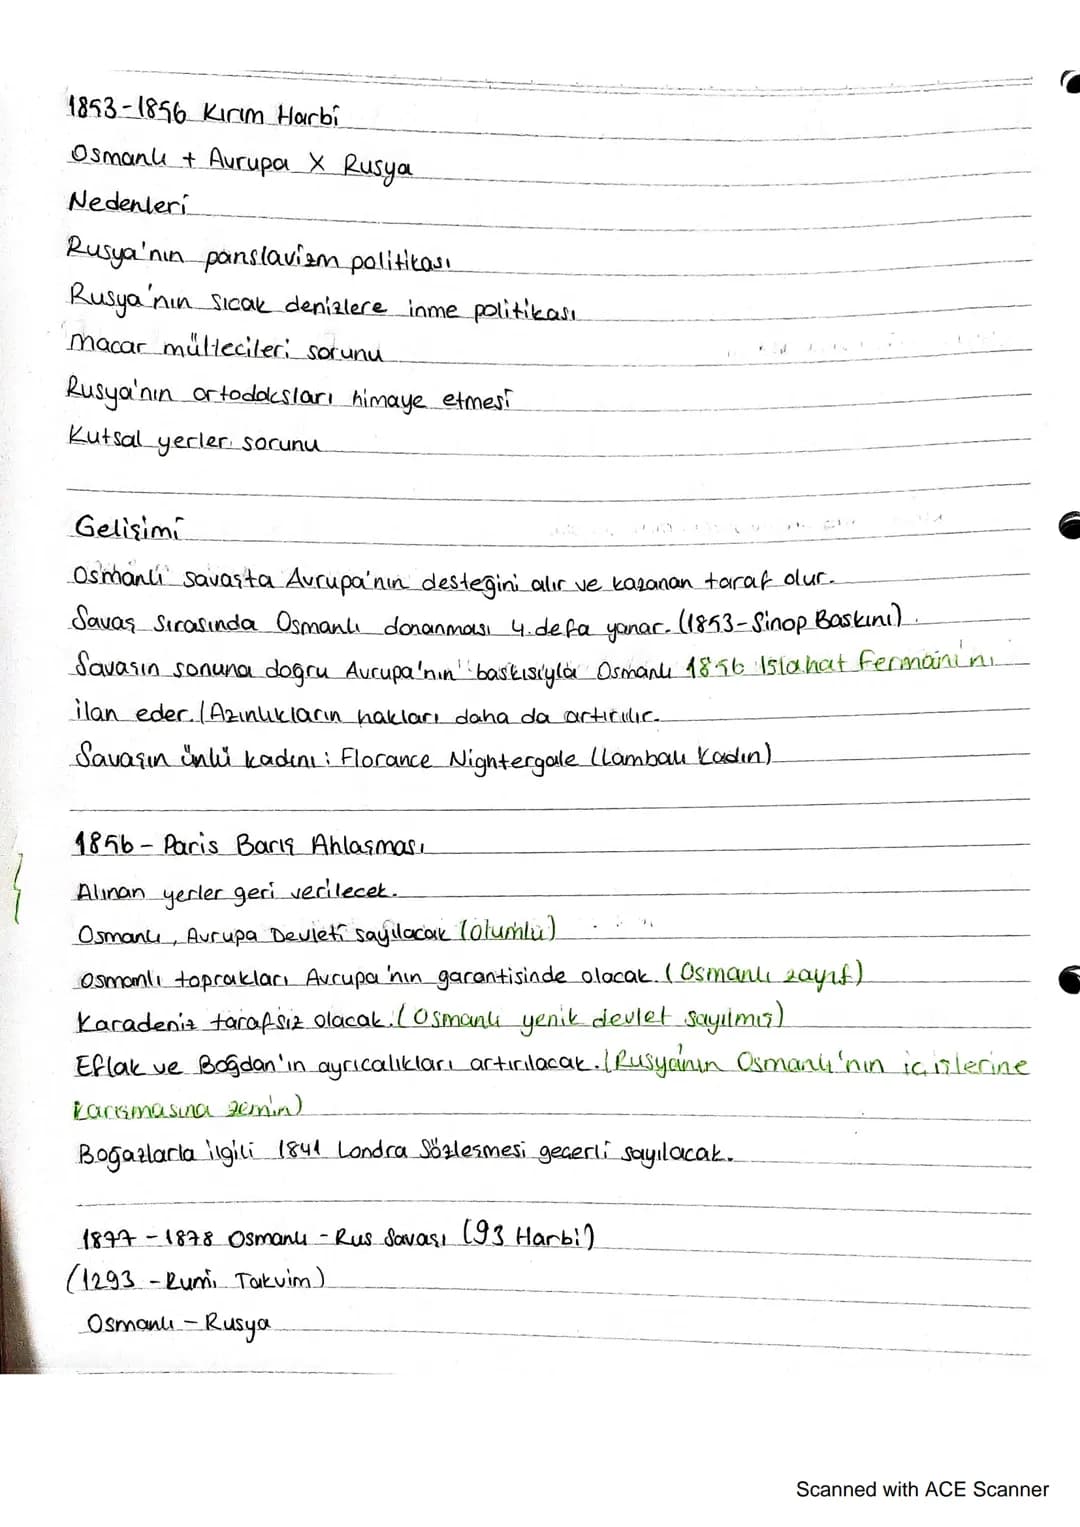 1853-1856 Kırım Harbi
Osmanlı + Avrupa X Rusya
Nedenleri
Rusya'nın panslavizm politikası
Rusya'nın sıcak denizlere inme politikası
Macar mültecileri sorunu
Rusya'nın ortodoksları himaye etmesi
Kutsal yerler sorunu
Gelişimi
Osmanlı savaşta Avrupa'nın desteğini alır ve kazanan taraf olur.
Savaş sırasında Osmanlı donanması 4.defa yanar. (1853-Sinop Baskını).
Savaşın sonuna doğru Avrupa'nın baskısıyla Osmanlı 1856 Islahat Fermanı'nı
ilan eder. (Azınlıkların hakları daha da artırılır.
Savaşın ünlü kadını: Florance Nightergale (Lambalı Kadın)
1856 - Paris Barış Ahlaşması
Alınan yerler geri verilecek.
Osmanlı, Avrupa Devleti sayılacak (Olumlu)
Osmanlı toprakları Avrupa'nın garantisinde olacak. (Osmanlı zayıf)
Karadeniz tarafsız olacak. (Osmanlı yenik devlet sayılmış)
Eflak ve Boğdan'ın ayrıcalıkları artırılacak. (Rusya'nın Osmanlı'nın iç işlerine
karışmasına zemin)
Boğazlarla ilgili 1841 Londra Sözleşmesi geçerli sayılacak.
1877 - 1878 Osmanlı - Rus Savaşı (93 Harbi)
(1293 - Rumi Takvim)
Osmanlı - Rusya
Scanned with ACE Scanner